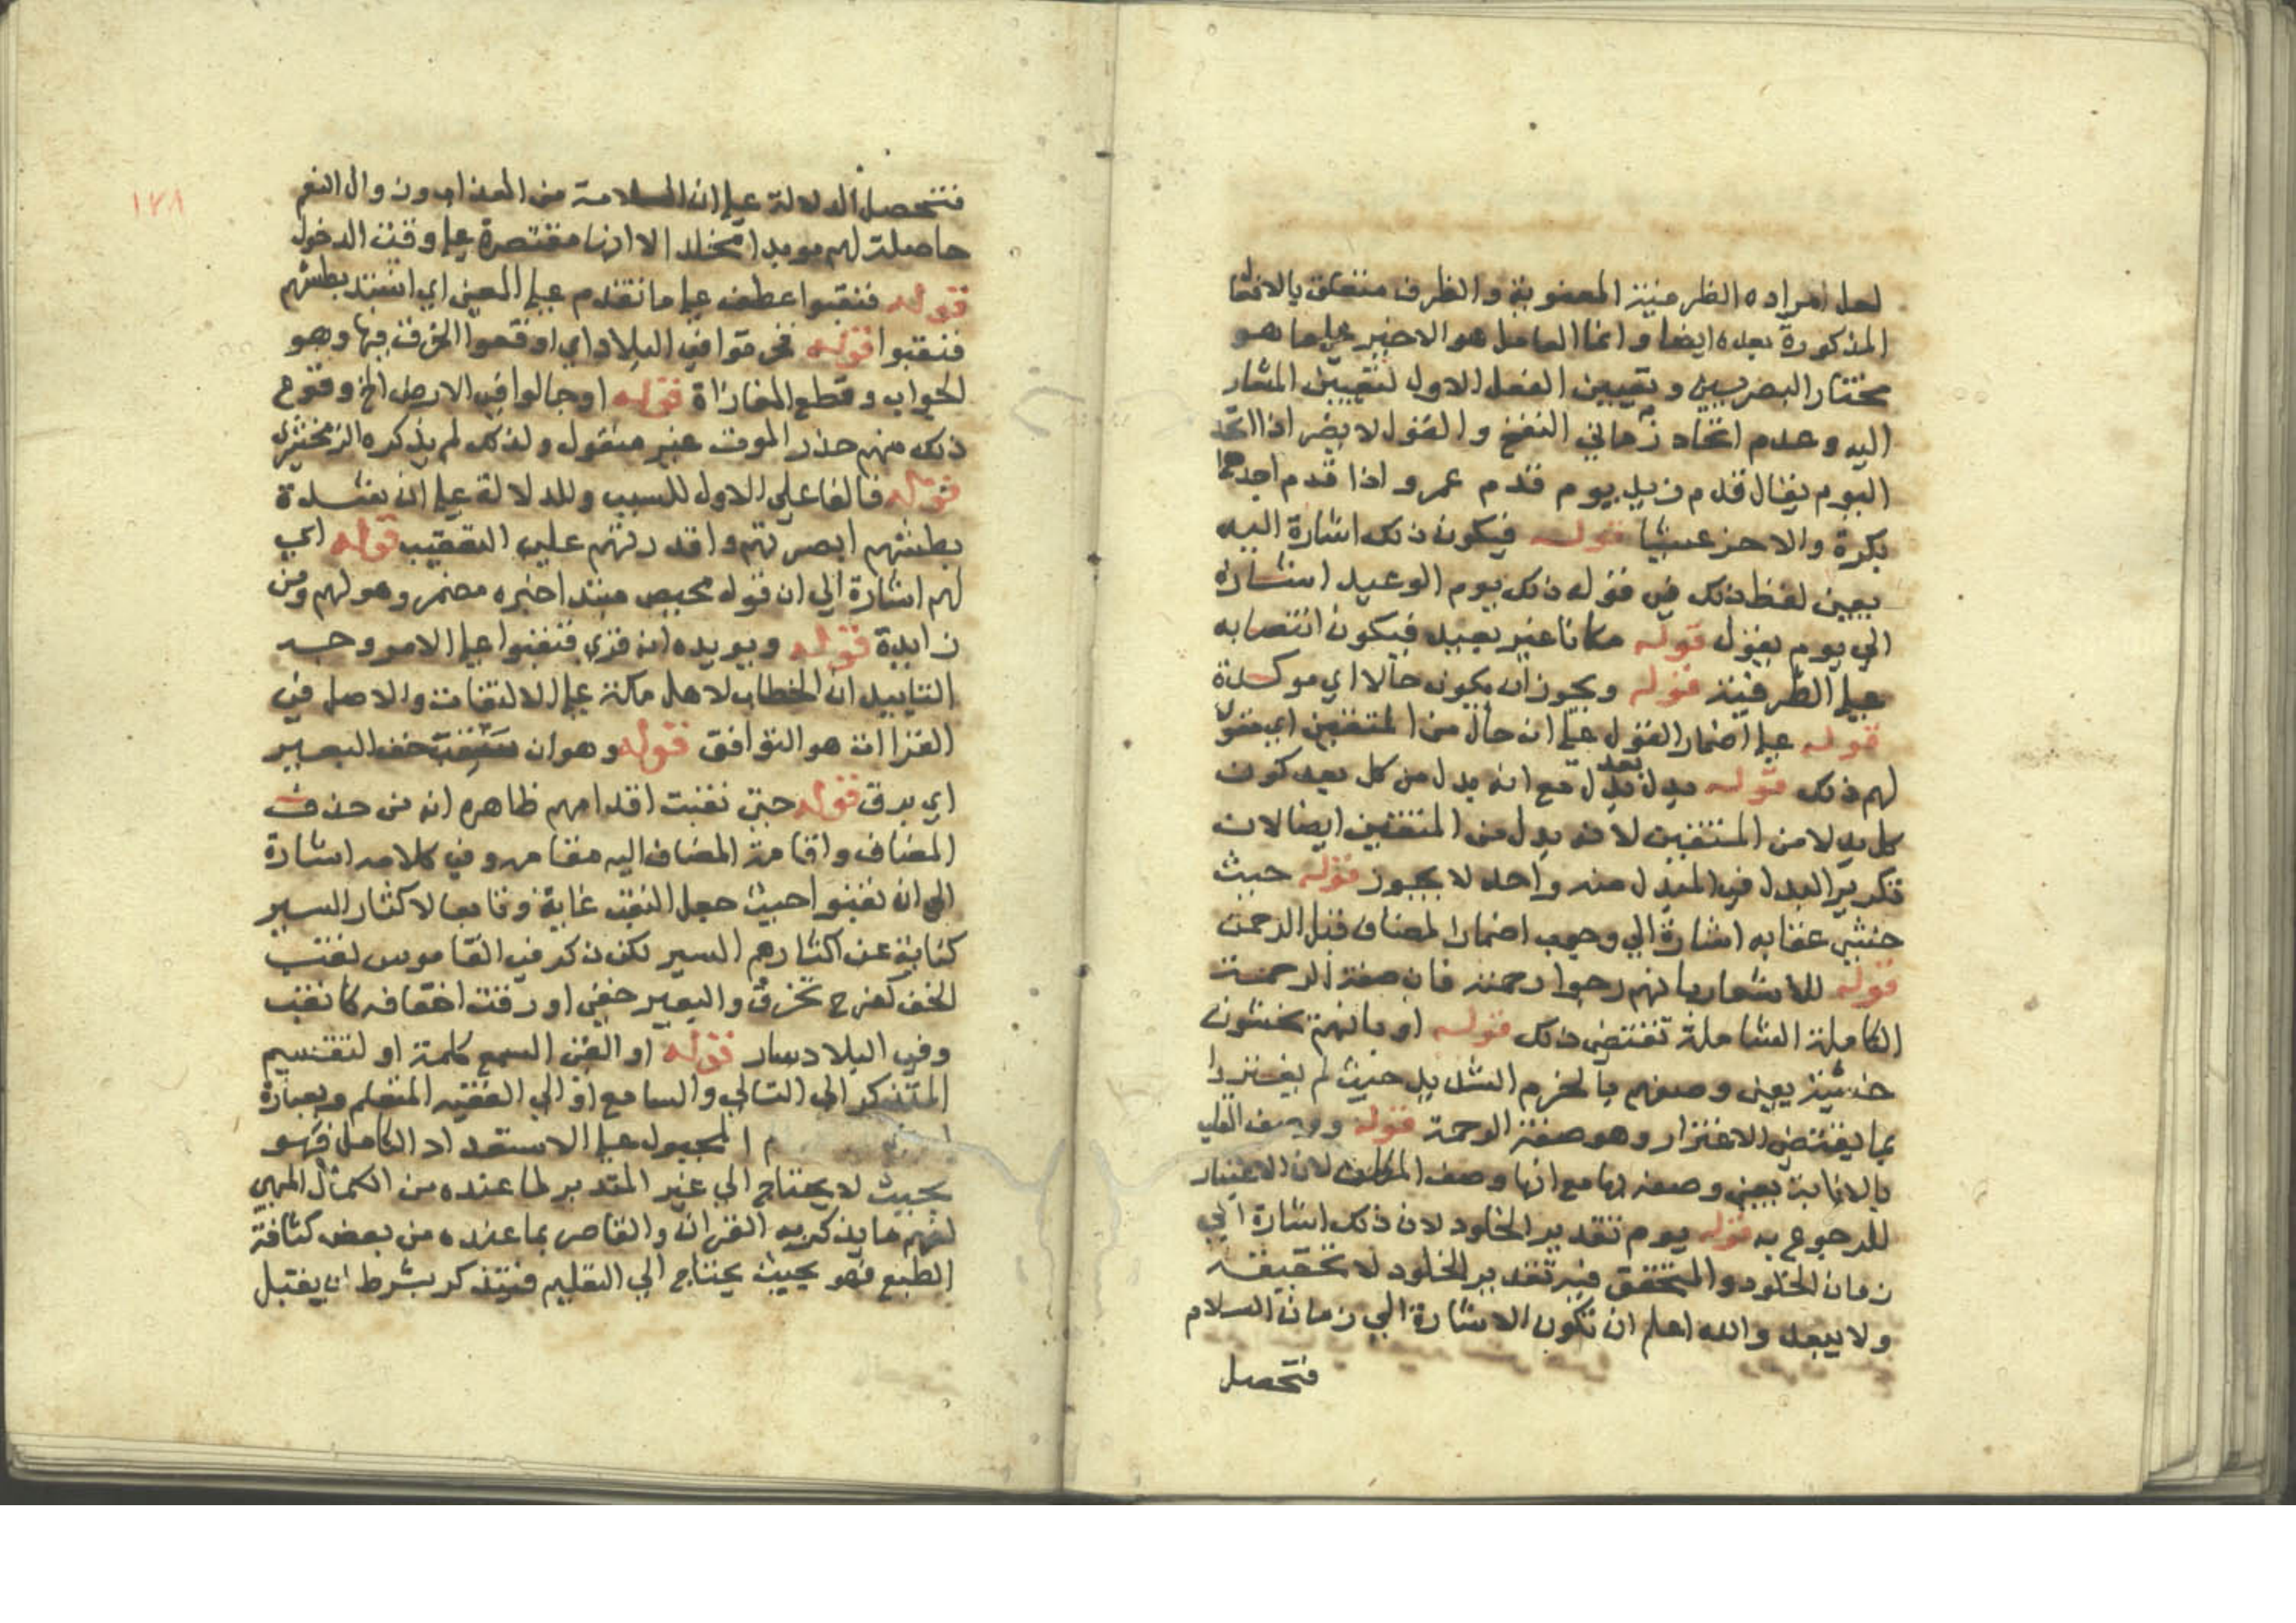 لعل مراده الظرفية المعنوية والظرف متعلق بالافعال
المذكورة بعده ايضا وانما العامل هو الاخير على ما هو
مختار البصريين وتعيين الفعل الاول لتعيين المشار
اليه وعدم اتحاد زماني النفخ والقول لا يضر اذا اتحد
اليوم يقال قدم زيد يوم قدم عمرو اذا قدم احدهما
بكرة والاخر عشيا قوله فيكون ذلك اشارة اليه
يعني لفظ ذلك في قوله ذلك يوم الوعيد اشارة
الي يوم يقول قوله مكانا غير بعيد فيكون انتصابه
على الظرفية قوله ويجوز ان يكون حالا اي موكدة
قوله على اضمار القول على انه حال من المتقين اي مقولا
لهم ذلك قوله بدل بعد بدل مع انه بدل من كل بعد كون
كل بدلا من المتقين لا انه بدل من المتقين ايضا لان
تكرير البدل في المبدل منه واحد لا يجوز قوله حيث
خشي عقابه اشارة الي وجوب اضمار المضاف قبل الرحمن
قوله للاشعار بانهم رجوا رحمته فان صفة الرحمة
الكاملة الشاملة تقتضي ذلك قوله او بانهم يخشون
خشية يعني وصفهم بالحزم الشديد حيث لم يغتروا
بما يقتضي الاغترار وهو صفة الرحمة قوله ووصف القلب
بالانابة يعني وصفه بها مع انها وصف المكلف لان الاعتبار
للرجوع به قوله يوم تقدير الخلود لان ذلك اشارة الي
زمان الخلود والمتحقق فيه تقدير الخلود لا تحقيقه
ولا يبعد والله اعلم ان تكون الاشارة الي زمان السلام
فتحصل
١٧٨
فتحصل الدلالة على ان السلامة من العذاب وزوال النعم
حاصلة لهم موبدا مخلدا لا انها مقتصرة على وقت الدخول
قوله فنقبوا عطف على ما تقدم على المعنى اي اشتد بطشهم
فنقبوا قوله فخرقوا في البلاد اي اوقعوا الخرق فيها وهو
الجواب وقطع المفازاة قوله او جالوا في الارض الخ وقوع
ذلك منهم حذر الموت غير منقول ولذلك لم يذكره الزمخشري
قوله فالفا على الاول للسبب وللدلالة على ان شدة
بطشهم ابصرتهم واقدرتهم على التنقيب قوله اي
لهم اشارة الي ان قوله محيص مبتدا خبره مضمر وهو لهم ومن
زايدة قوله ويويده انه قري فنقبوا على الامر وجه
التاييد ان الخطاب لاهل مكة على الالتفات والاصل في
القراات هو التوافق قوله وهو ان خف البعير
اي يرق قوله حتى نقبت اقدامهم ظاهره انه من حذف
المضاف واقامة المضاف اليه مقامه وفي كلامه اشارة
الي ان نقبوا حيث جعل النقب غاية وقامعا لاكثار السير
كناية عن اكثارهم السير لكن ذكر في القاموس نقب
الخف كفرح تخرق والبعير حفي او رقت اخفافه كانقب
وفي البلاد سار قوله او القى السمع كلمة او لتقسيم
المتذكر الى التالي والسامع او الي الفقيه المتعلم وبعبارة
المجبول على الاستعداد الكامل فهو
بحيث لا يحتاج الي غير المتدبر لما عنده من الكمال المهيي
لفهم ما يذكر به القران والقاصر بما عنده من بعض كثافة
الطبع فهو بحيث يحتاج الي التعليم فيتذكر بشرط ان يقبل